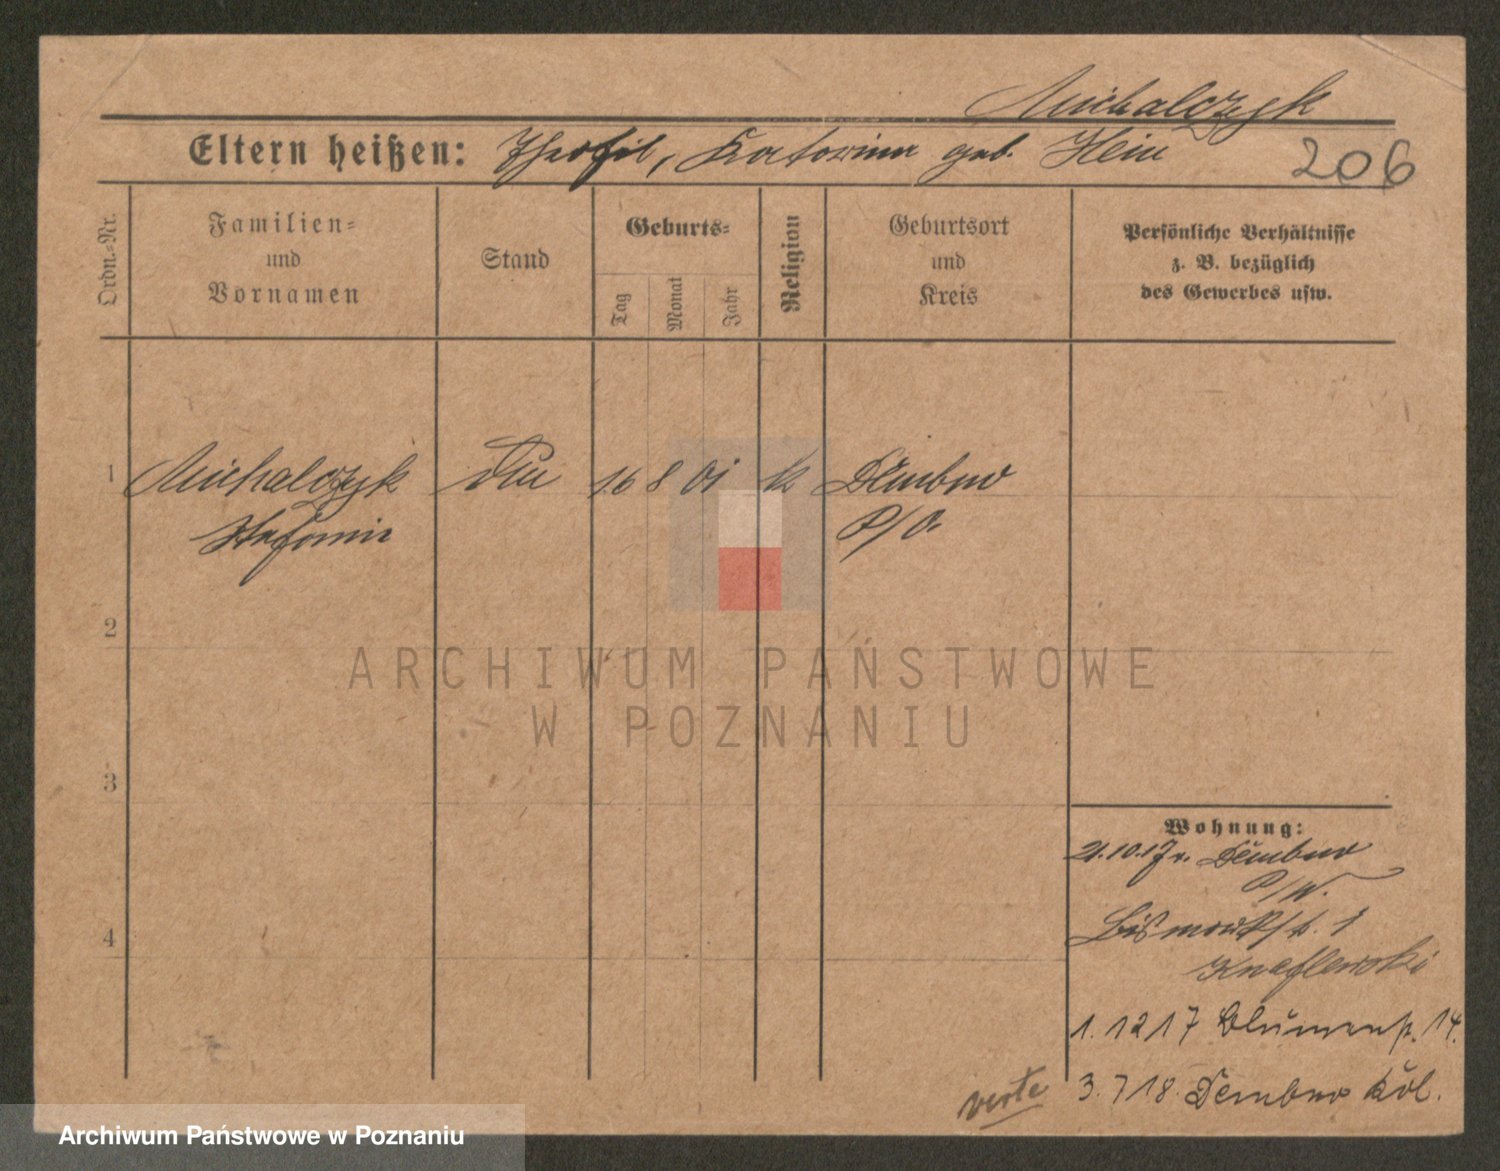 Michalczyk
Eltern heißen: Theofil, Katharina geb. Hein
206
Ordn.-Nr.
Familien-
und
Vornamen
Stand
Geburts-
Tag
Monat
Jahr
Religion
Geburtsort
und
Kreis
Persönliche Verhältnisse
z. B. bezüglich
des Gewerbes usw.
1 Michalczyk 16 8 01 k Dembno
Stefanie
2
3
4
ARCHIWUM PAŃSTWOWE
W POZNANIU
Wohnung:
21.10.17 v. Dembno
P/W.
Bismarckst. 1
Knaflewski
1. 12 17 Blumenst. 14.
3. 7 18. Dembno Kol.
verte
Archiwum Państwowe w Poznaniu